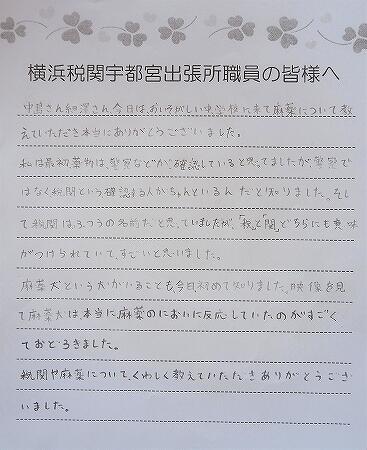 横浜税関宇都宮出張所職員の皆様へ
中島さん細澤さん今日は、おいそがしい中学校に来て麻薬について教
えていただき本当にありがとうございました。
私は最初薬物は、警察などが確認していると思ってましたが、警察で
はなく税関という確認する人がちゃんといるんだと知りました。そし
て税関は、ふつうの名前だと思っていましたが、「税」と「関」どちらにも意味
がつけられていて、すごいと思いました。
麻薬犬という犬がいることも今日初めて知りました。映像を見
て麻薬犬は本当に麻薬のにおいに反応していたのがすごく
ておどろきました。
税関や麻薬について、くわしく教えていただきありがとうござ
いました。